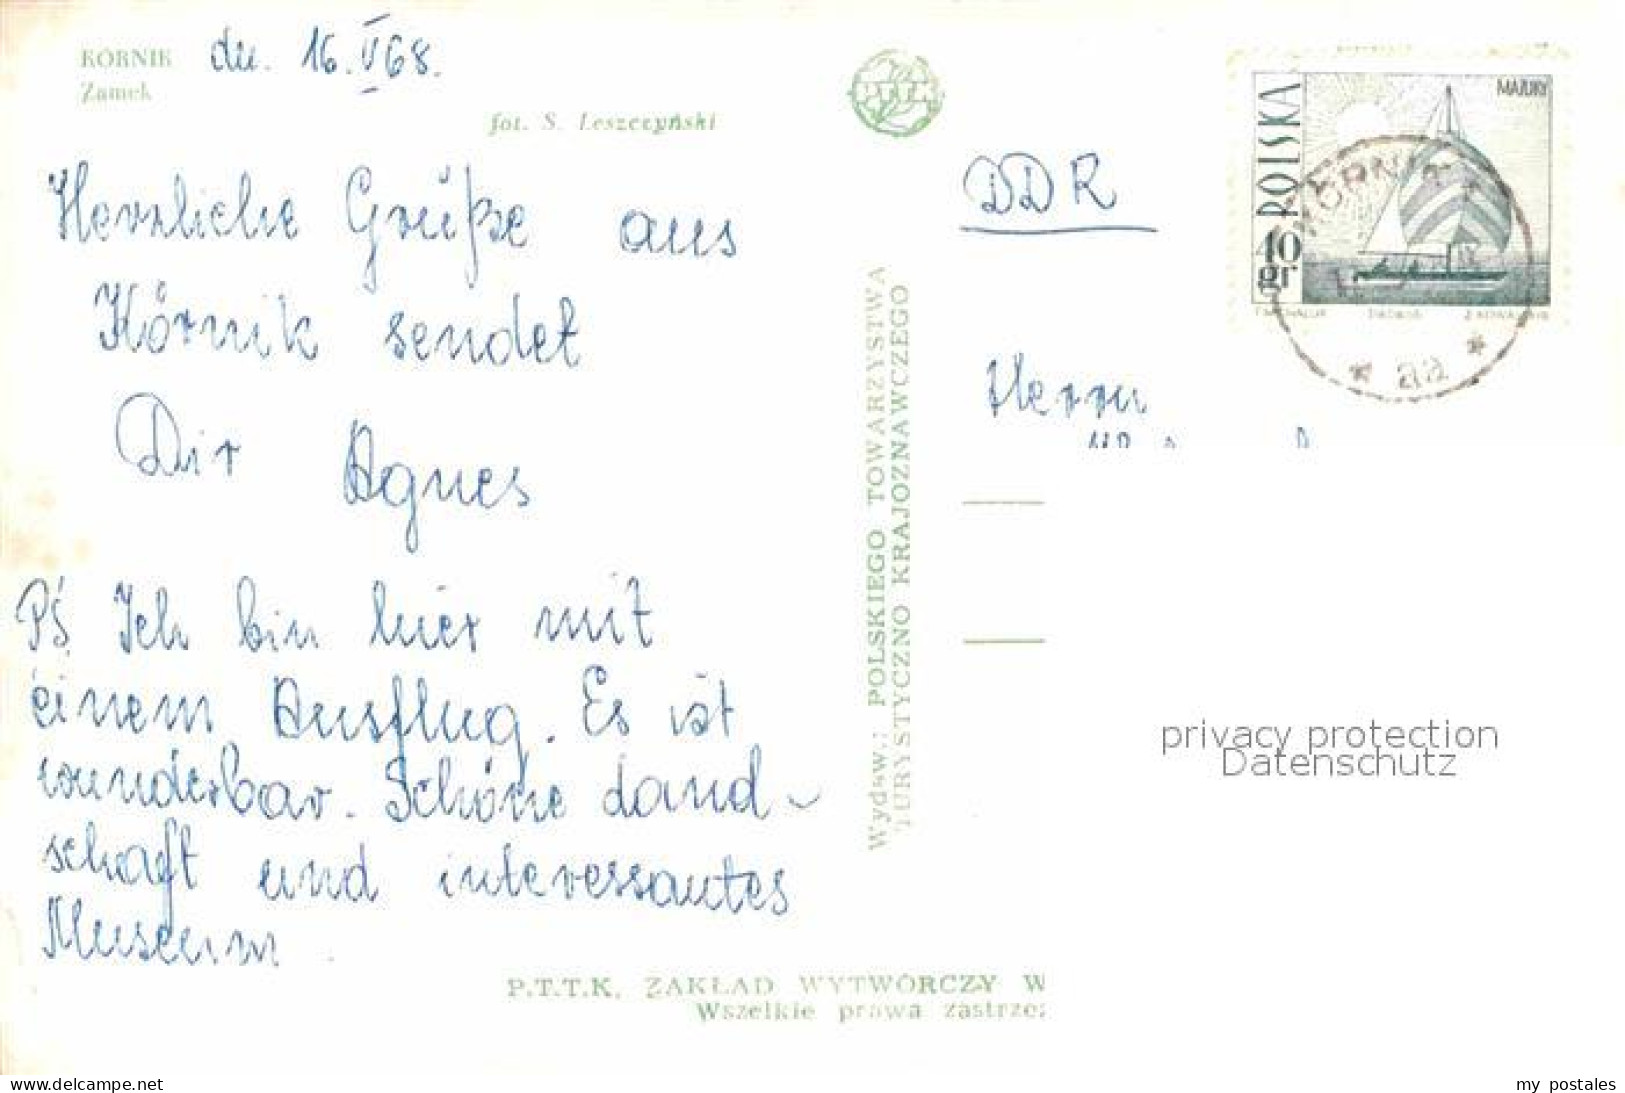 KÓRNIK
Zamek
dn. 16. V 68.
fot. S. Leszczyński
Herzliche Grüße aus
Kórnik sendet
Dir Agnes
PS. Ich bin hier mit
einem Ausflug. Es ist
wunderbar. Schöne Land-
schaft und interessantes
Museum.
PTTK
Wydaw.: POLSKIEGO TOWARZYSTWA
TURYSTYCZNO KRAJOZNAWCZEGO
P.T.T.K. ZAKŁAD WYTWÓRCZY W
Wszelkie prawa zastrze
DDR
POLSKA
40
gr
MAZURY
KÓRNIK
aa
Herrn
privacy protection
Datenschutz
www.delcampe.net
my postales